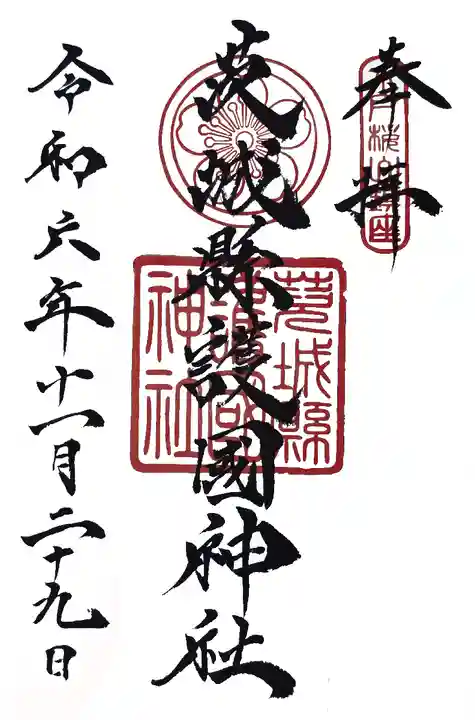 奉拝
桜山鎮座
茨城縣護國神社
茨城縣
護國
神社
令和六年十一月二十九日